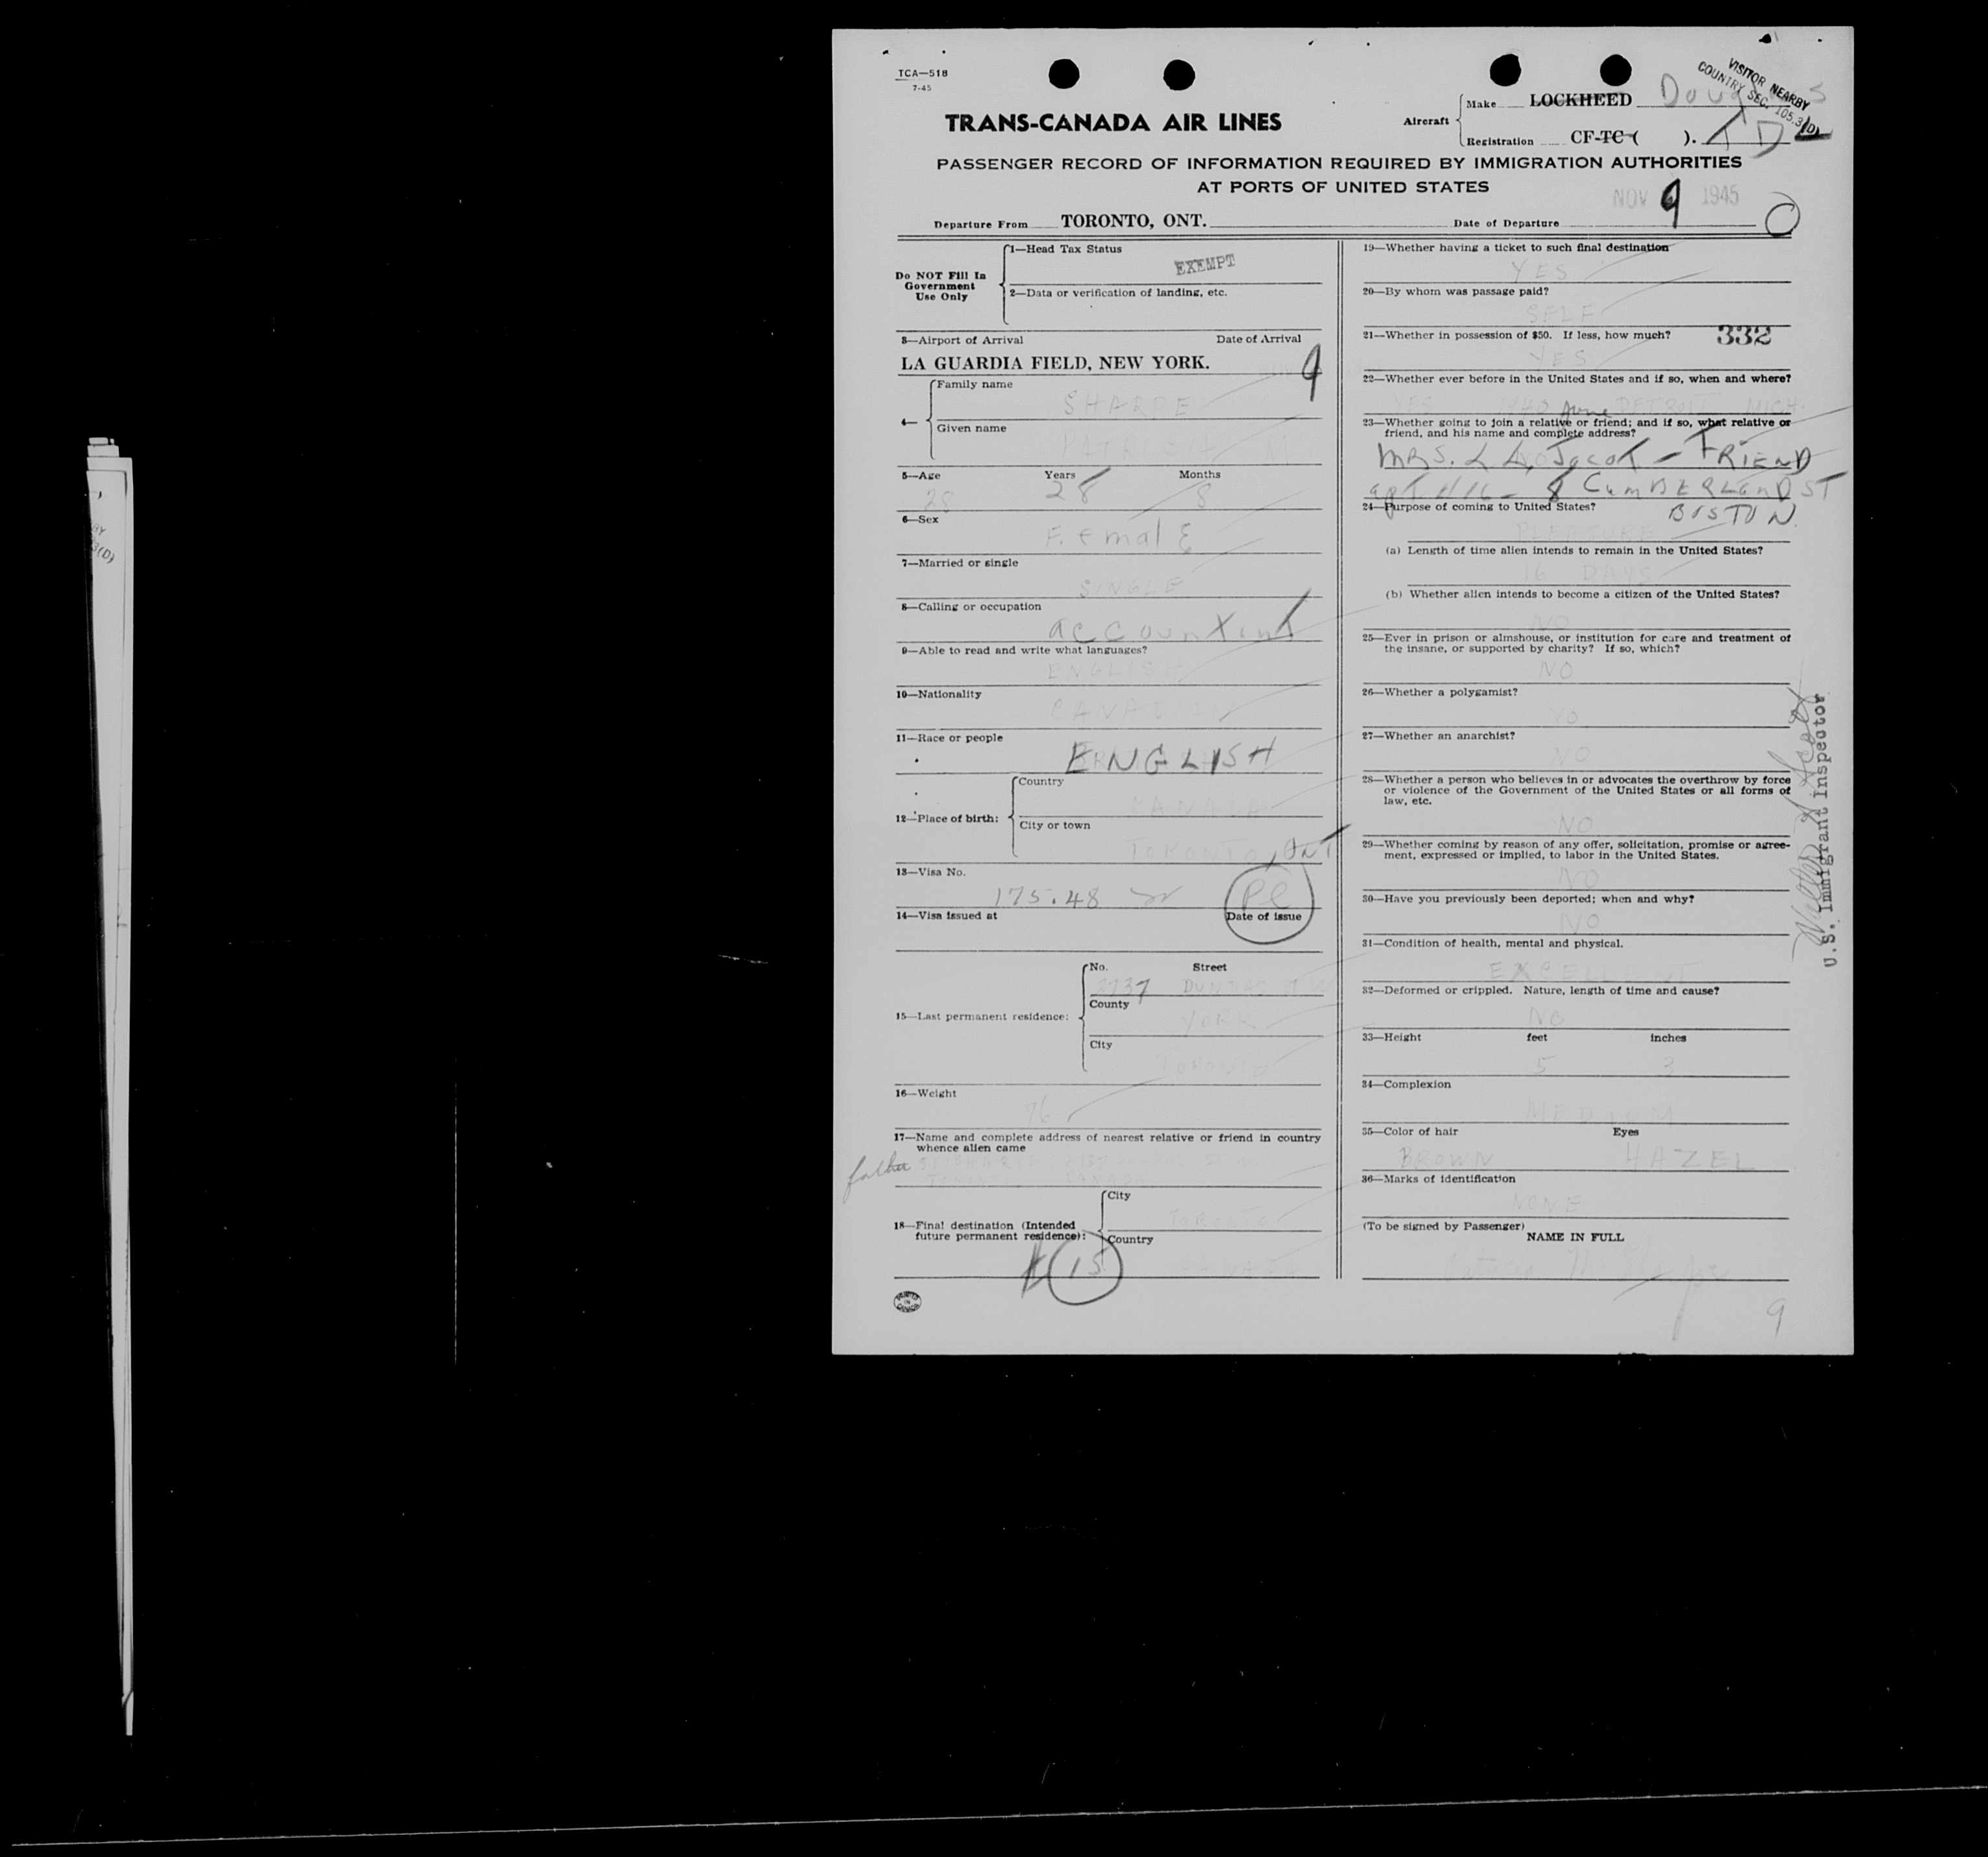 TCA—518
7-45
VISITOR NEARBY
COUNTRY SEC. 105.3(D)
TRANS-CANADA AIR LINES
Aircraft
Make LOCKHEED
Registration CF-TC-( ). T D
PASSENGER RECORD OF INFORMATION REQUIRED BY IMMIGRATION AUTHORITIES
AT PORTS OF UNITED STATES
NOV 9 1945
Departure From TORONTO, ONT. Date of Departure
Do NOT Fill In
Government
Use Only
1—Head Tax Status
EXEMPT
2—Data or verification of landing, etc.
3—Airport of Arrival Date of Arrival
LA GUARDIA FIELD, NEW YORK. 9
4—
Family name
SHARPE
Given name
5—Age Years Months
28 28 8
6—Sex
Female
7—Married or single
SINGLE
8—Calling or occupation
accountant
9—Able to read and write what languages?
ENGLISH
10—Nationality
CANADIAN
11—Race or people
ENGLISH
12—Place of birth:
Country
CANADA
City or town
TORONTO, ONT
13—Visa No.
175.48 PC
14—Visa issued at Date of issue
15—Last permanent residence:
No. Street
2737 DUNDAS ST W
County
YORK
City
TORONTO
16—Weight
96
17—Name and complete address of nearest relative or friend in country
whence alien came
father
18—Final destination (Intended
future permanent residence):
City
TORONTO
Country
CANADA
15
19—Whether having a ticket to such final destination
YES
20—By whom was passage paid?
SELF
21—Whether in possession of $50. If less, how much? 332
YES
22—Whether ever before in the United States and if so, when and where?
YES 1940 June DETROIT MICH.
23—Whether going to join a relative or friend; and if so, what relative or
friend, and his name and complete address?
MRS. L A Jacot — FRIEND
apt #16 - 8 CUMBERLAND ST
BOSTON.
24—Purpose of coming to United States?
PLEASURE
(a) Length of time alien intends to remain in the United States?
16 DAYS
(b) Whether alien intends to become a citizen of the United States?
NO
25—Ever in prison or almshouse, or institution for care and treatment of
the insane, or supported by charity? If so, which?
NO
26—Whether a polygamist?
NO
27—Whether an anarchist?
NO
28—Whether a person who believes in or advocates the overthrow by force
or violence of the Government of the United States or all forms of
law, etc.
NO
29—Whether coming by reason of any offer, solicitation, promise or agree-
ment, expressed or implied, to labor in the United States.
NO
30—Have you previously been deported; when and why?
NO
31—Condition of health, mental and physical.
EXCELLENT
32—Deformed or crippled. Nature, length of time and cause?
NO
33—Height feet inches
5 3
34—Complexion
MEDIUM
35—Color of hair Eyes
BROWN HAZEL
36—Marks of identification
NONE
(To be signed by Passenger)
NAME IN FULL
9
U.S. Immigrant Inspector